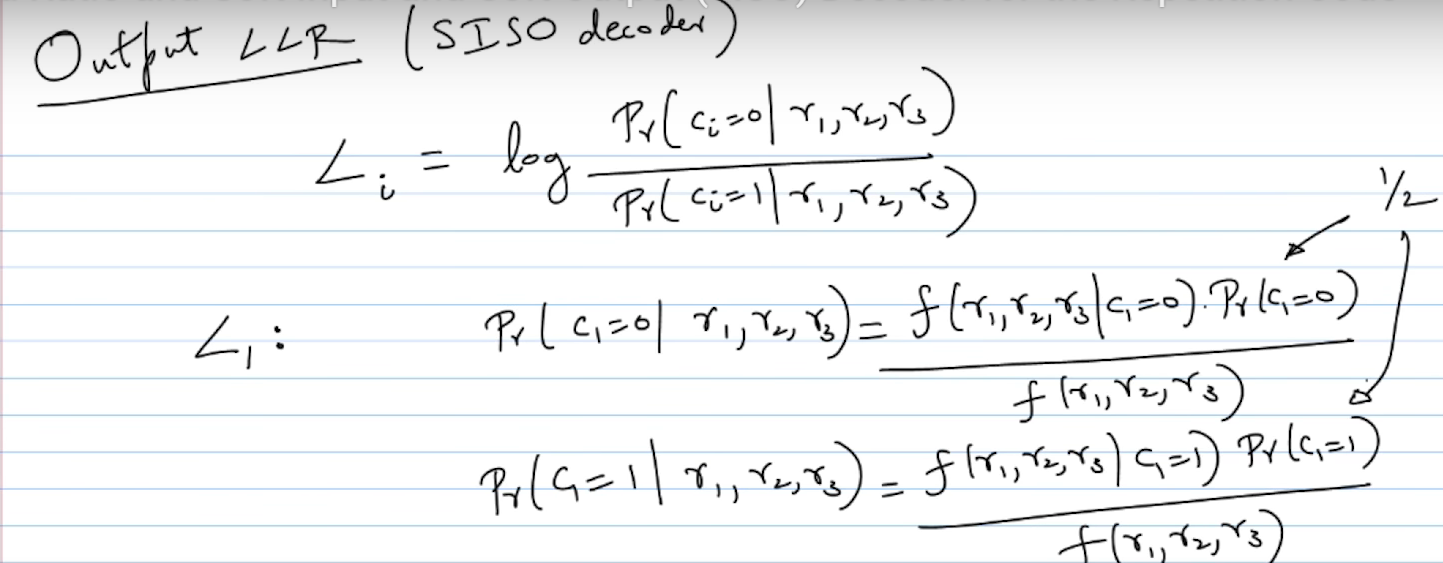 Output LLR (SISO decoder)
L_i = log Pr(c_i=0 | r_1, r_2, r_3) / Pr(c_i=1 | r_1, r_2, r_3)
1/2
L_1: Pr(c_1=0 | r_1, r_2, r_3) = f(r_1, r_2, r_3 | c_1=0) · Pr(c_1=0) / f(r_1, r_2, r_3)
Pr(c_1=1 | r_1, r_2, r_3) = f(r_1, r_2, r_3 | c_1=1) Pr(c_1=1) / f(r_1, r_2, r_3)